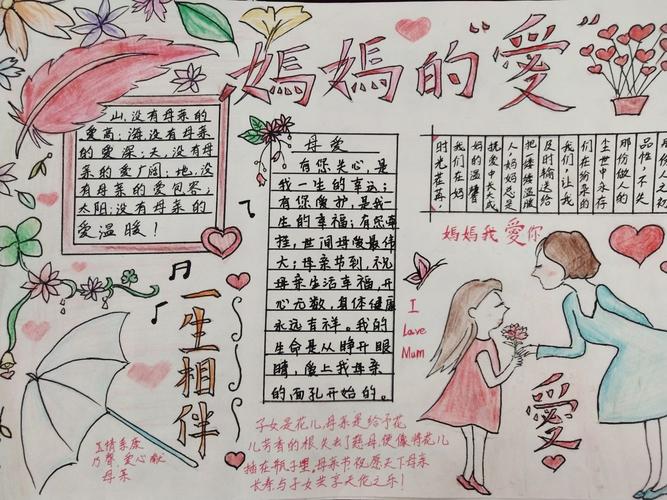 媽媽的“愛”
山,没有母亲的
爱高;海没有母亲
的爱深;天,没有母
亲的爱广阔;地,没
有母亲的爱包容;
太阳,没有母亲的
爱温暖!
母爱
有您关心,是
我一生的幸运;
有您爱护,是我一
生的幸福;有您牵
挂,世间母爱最伟
大;母亲节到,祝
母亲生活幸福,开
心无数,身体健康
永远吉祥。我的
生命是从睁开眼
睛,爱上我母亲
的面孔开始的。
时光荏苒,
我们在妈
妈的温馨
抚爱中长大成
人,妈妈总是
把缕缕温暖
及时输送给
我们,让我
们在纷杂的
尘世中永存
那份做人的
品性,不失
那份
人初
媽媽我愛你
一生相伴
I
Love
Mum
愛
子女是花儿,母亲是给予花
儿芳香的根,失去了慈母,便像将花儿
插在瓶子里。母亲节祝愿天下母亲
长寿与子女共享天伦之乐!
爱心献
母亲